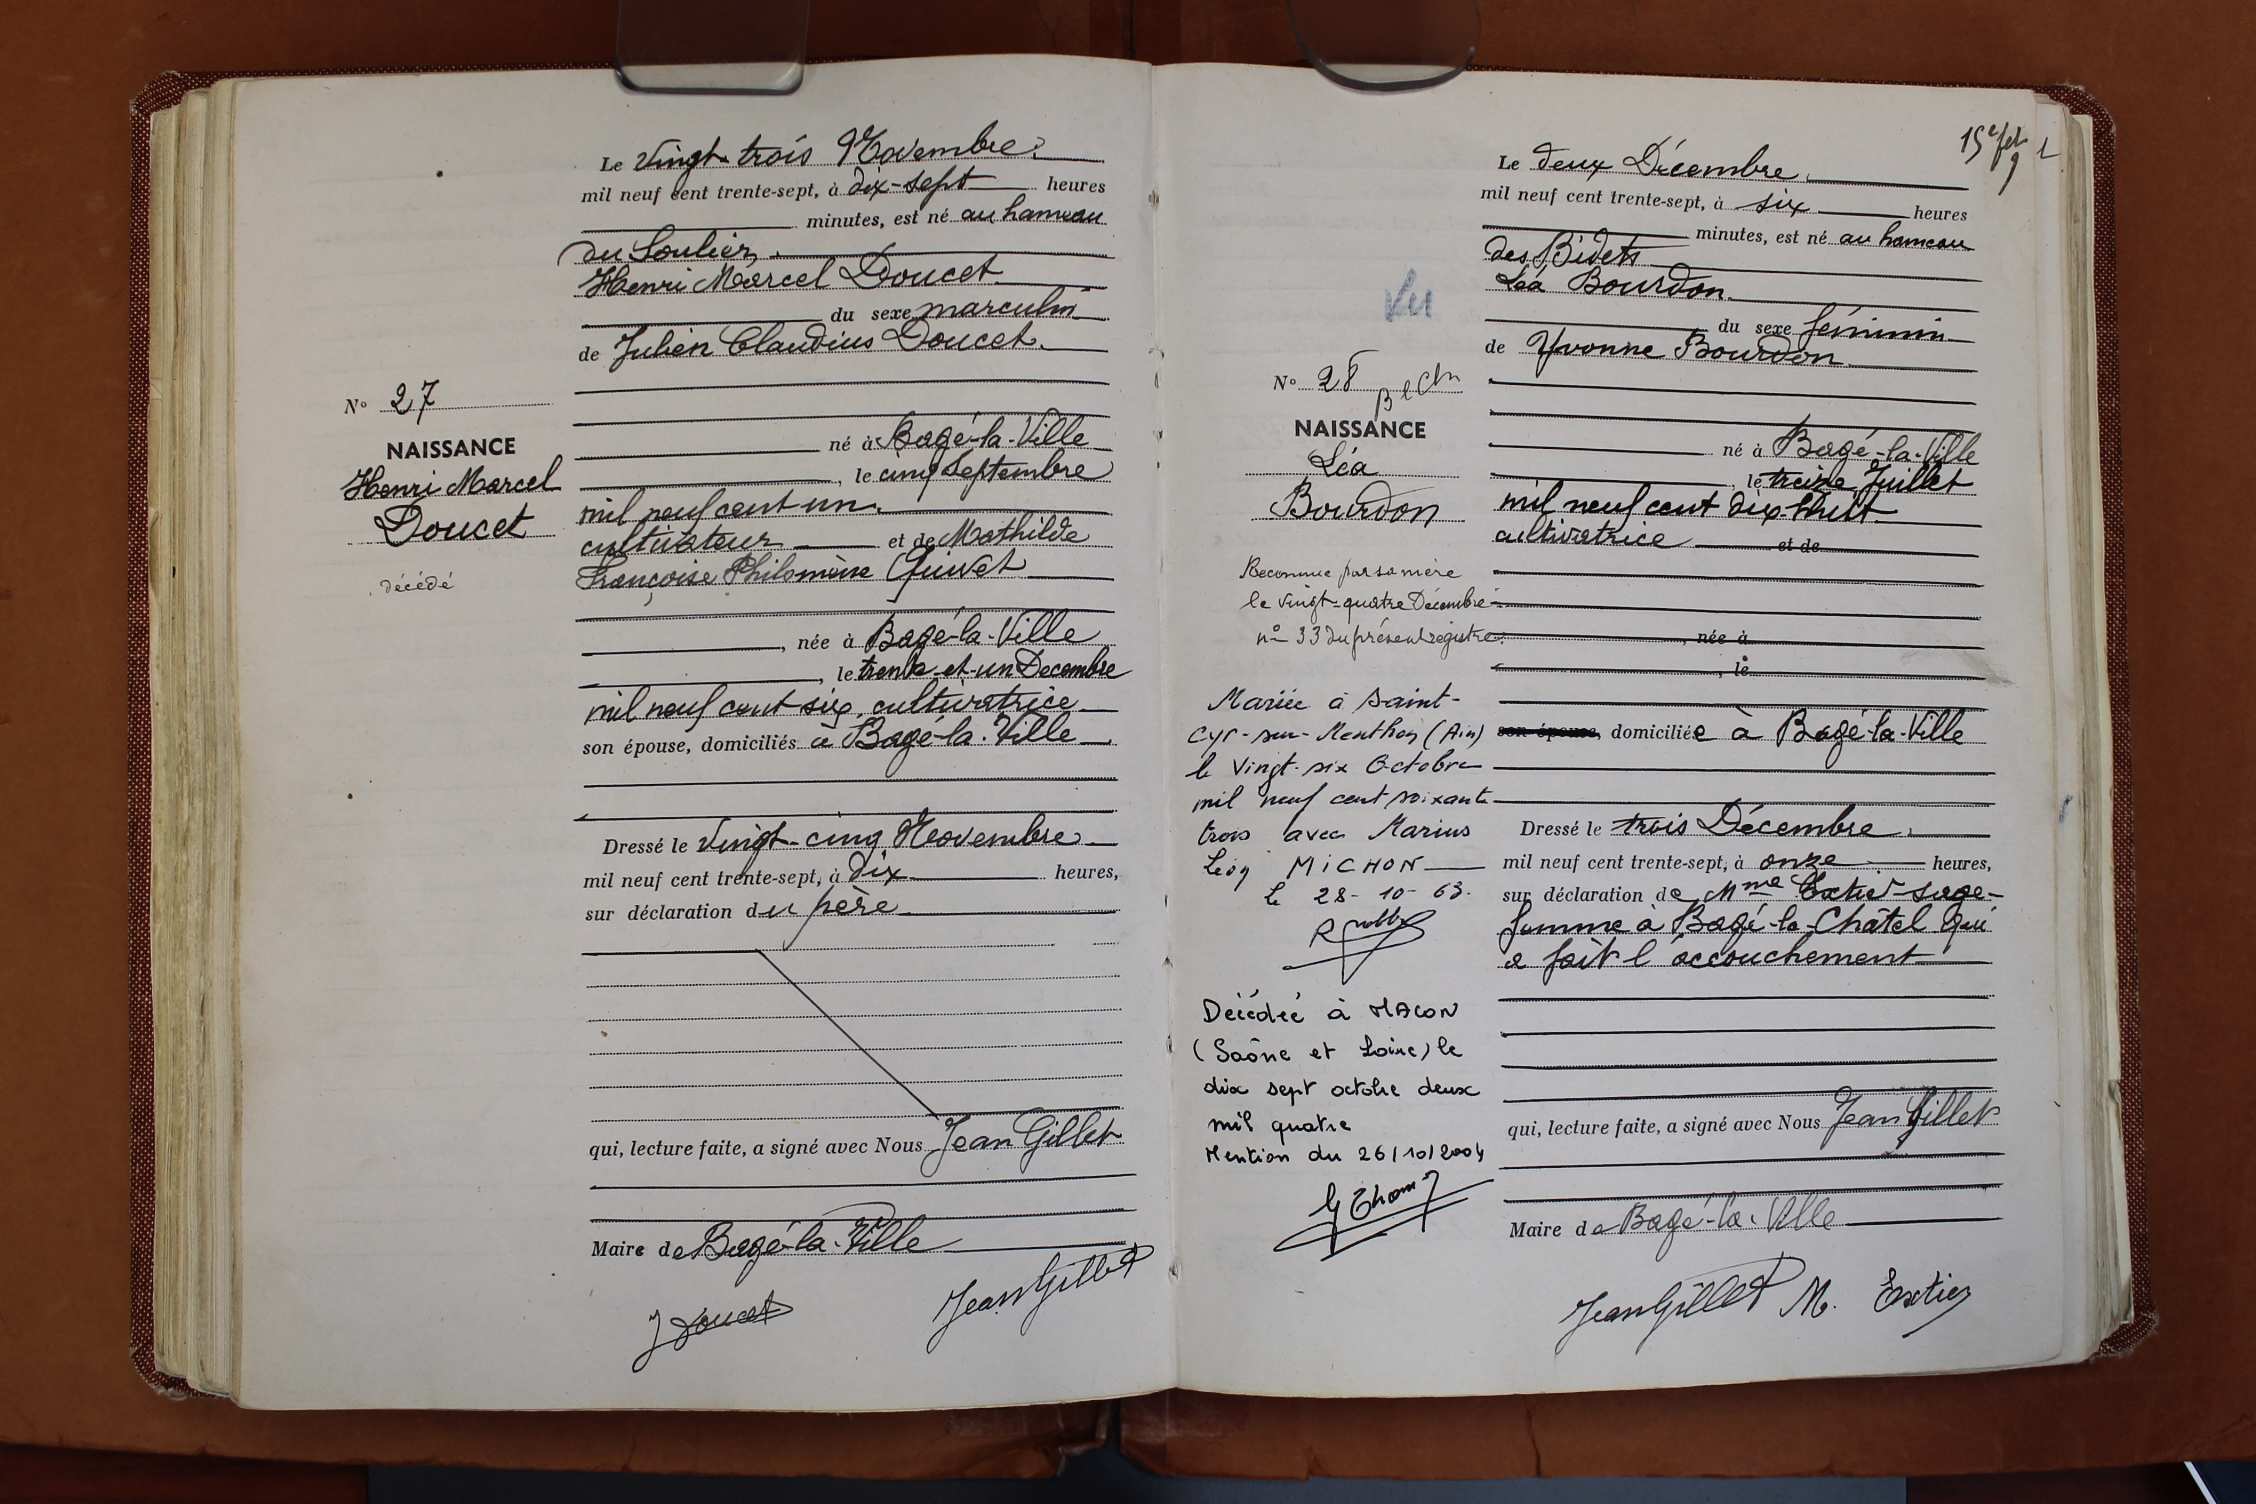 Le Vingt-trois Novembre
mil neuf cent trente-sept, à dix-sept heures
minutes, est né au hameau
du Soulier
Henri Marcel Doucet
du sexe masculin
de Julien Claudius Doucet
né à Bagé-la-Ville
, le cinq Septembre
mil neuf cent un
cultivateur et de Mathilde
Françoise Philomène Guivet
, née à Bagé-la-Ville
, le trente-et-un Decembre
mil neuf cent six, cultivatrice
son épouse, domiciliés à Bagé-la-Ville
Dressé le Vingt-cinq Novembre
mil neuf cent trente-sept, à dix heures,
sur déclaration du père
qui, lecture faite, a signé avec Nous Jean Gillet
Maire de Bagé-la-Ville
J Doucet
Jean Gillet
N° 27
NAISSANCE
Henri Marcel
Doucet
décédé
15e
Le deux Décembre
mil neuf cent trente-sept, à six heures
minutes, est né au hameau
des Bidets
Léa Bourdon
du sexe féminin
de Yvonne Bourdon
né à Bagé-la-Ville
, le treize Juillet
mil neuf cent dix-huit
cultivatrice et de
, née à
, le
son épouse, domiciliée à Bagé-la-Ville
Dressé le trois Décembre
mil neuf cent trente-sept, à onze heures,
sur déclaration de Mme Extier sage-
femme à Bagé-le-Châtel qui
a fait l'accouchement
qui, lecture faite, a signé avec Nous Jean Gillet
Maire de Bagé-la-Ville
Jean Gillet M. Extier
Lu
N° 28
NAISSANCE
Léa
Bourdon
Reconnue par sa mère
le vingt-quatre Décembre
n° 33 du présent registre.
Mariée à Saint-
Cyr-sur-Menthon (Ain)
le Vingt-six Octobre
mil neuf cent soixante
trois avec Marius
Léon MICHON
le 28-10-63.
Décédée à MACON
(Saône et Loire) le
dix sept octobre deux
mil quatre
Mention du 26/10/2004